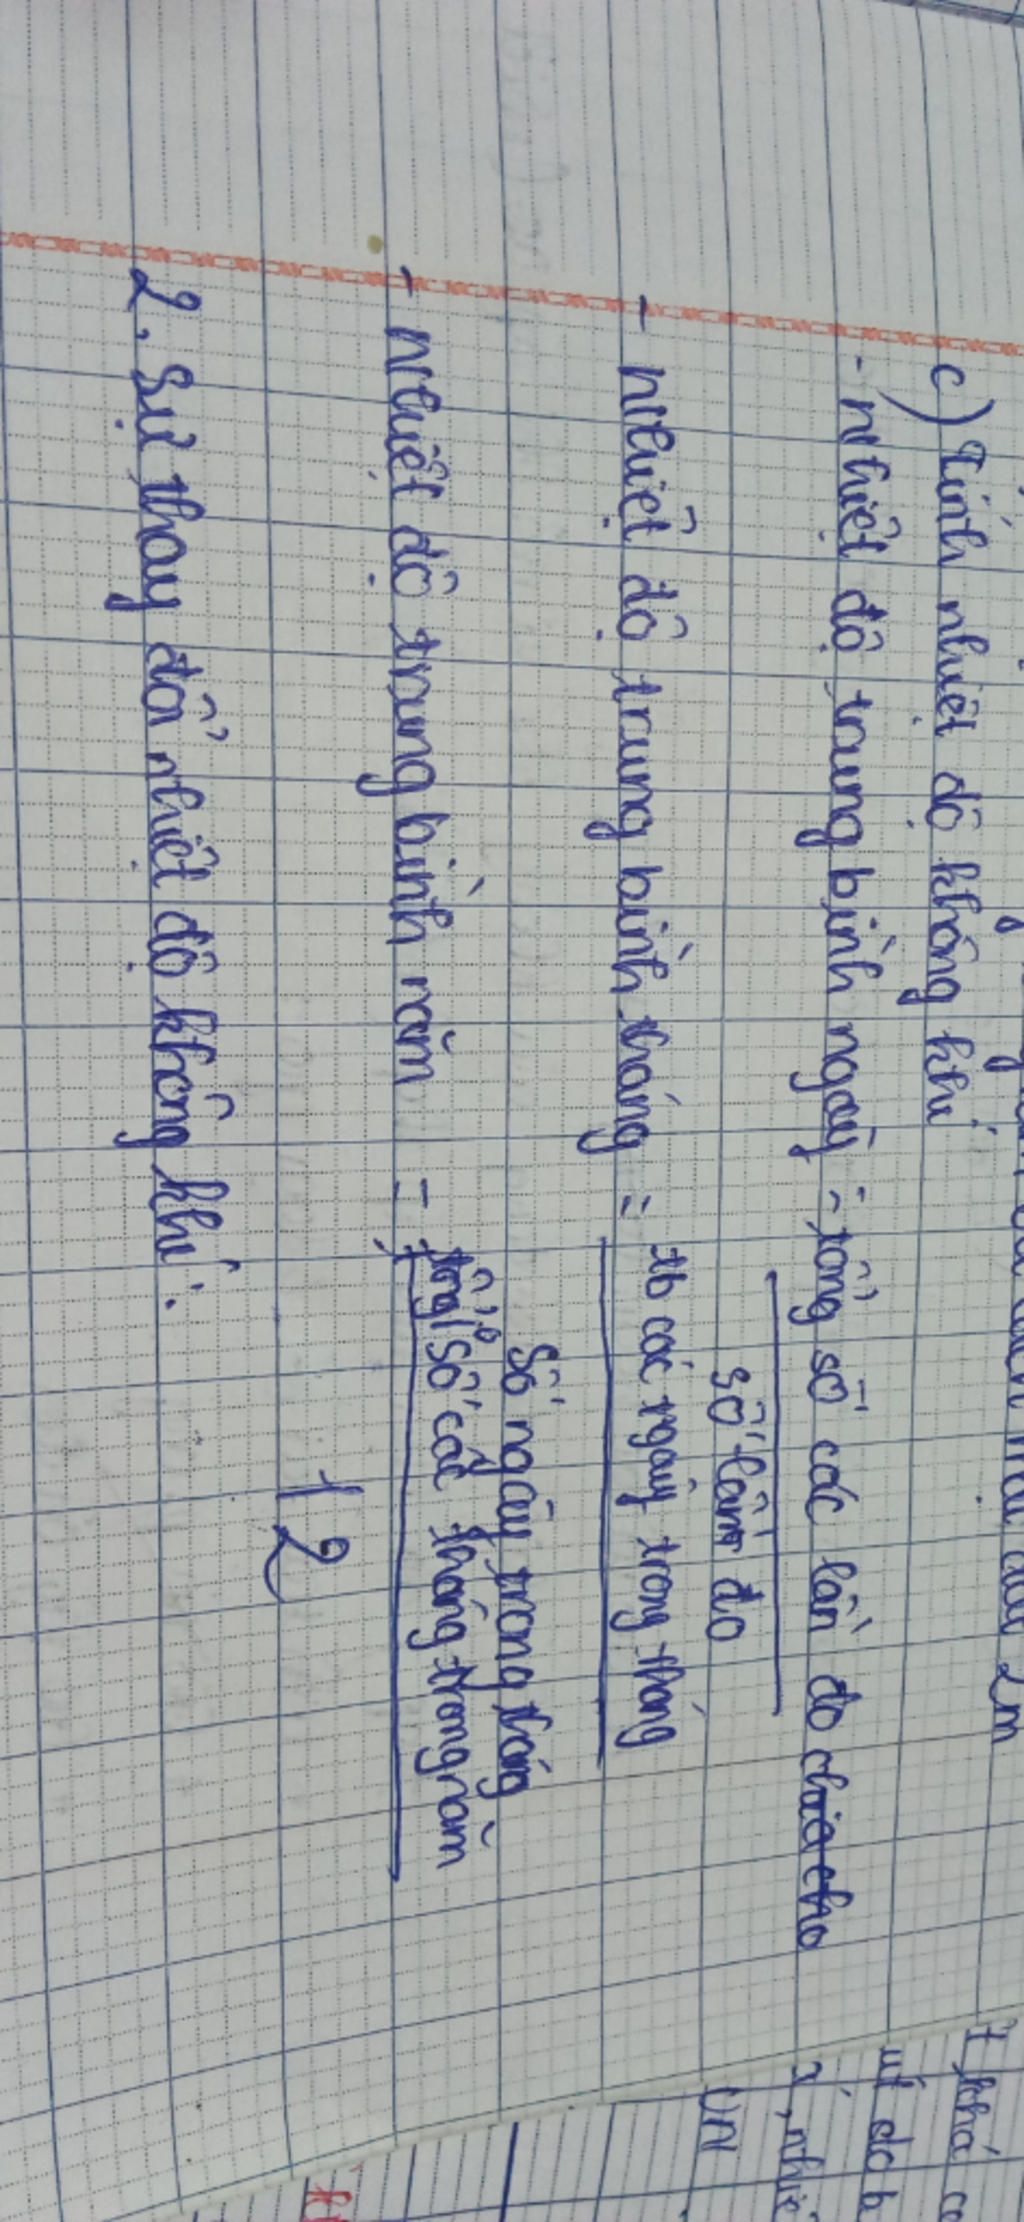 2m
c) Tính nhiệt độ không khí
- nhiệt độ trung bình ngày = tổng số các lần đo chia cho
số lần đo
- nhiệt độ trung bình tháng = tb các ngày trong tháng
số ngày trong tháng
- nhiệt độ trung bình năm = tổng số các tháng trong năm
12
2. Sự thay đổi nhiệt độ không khí: